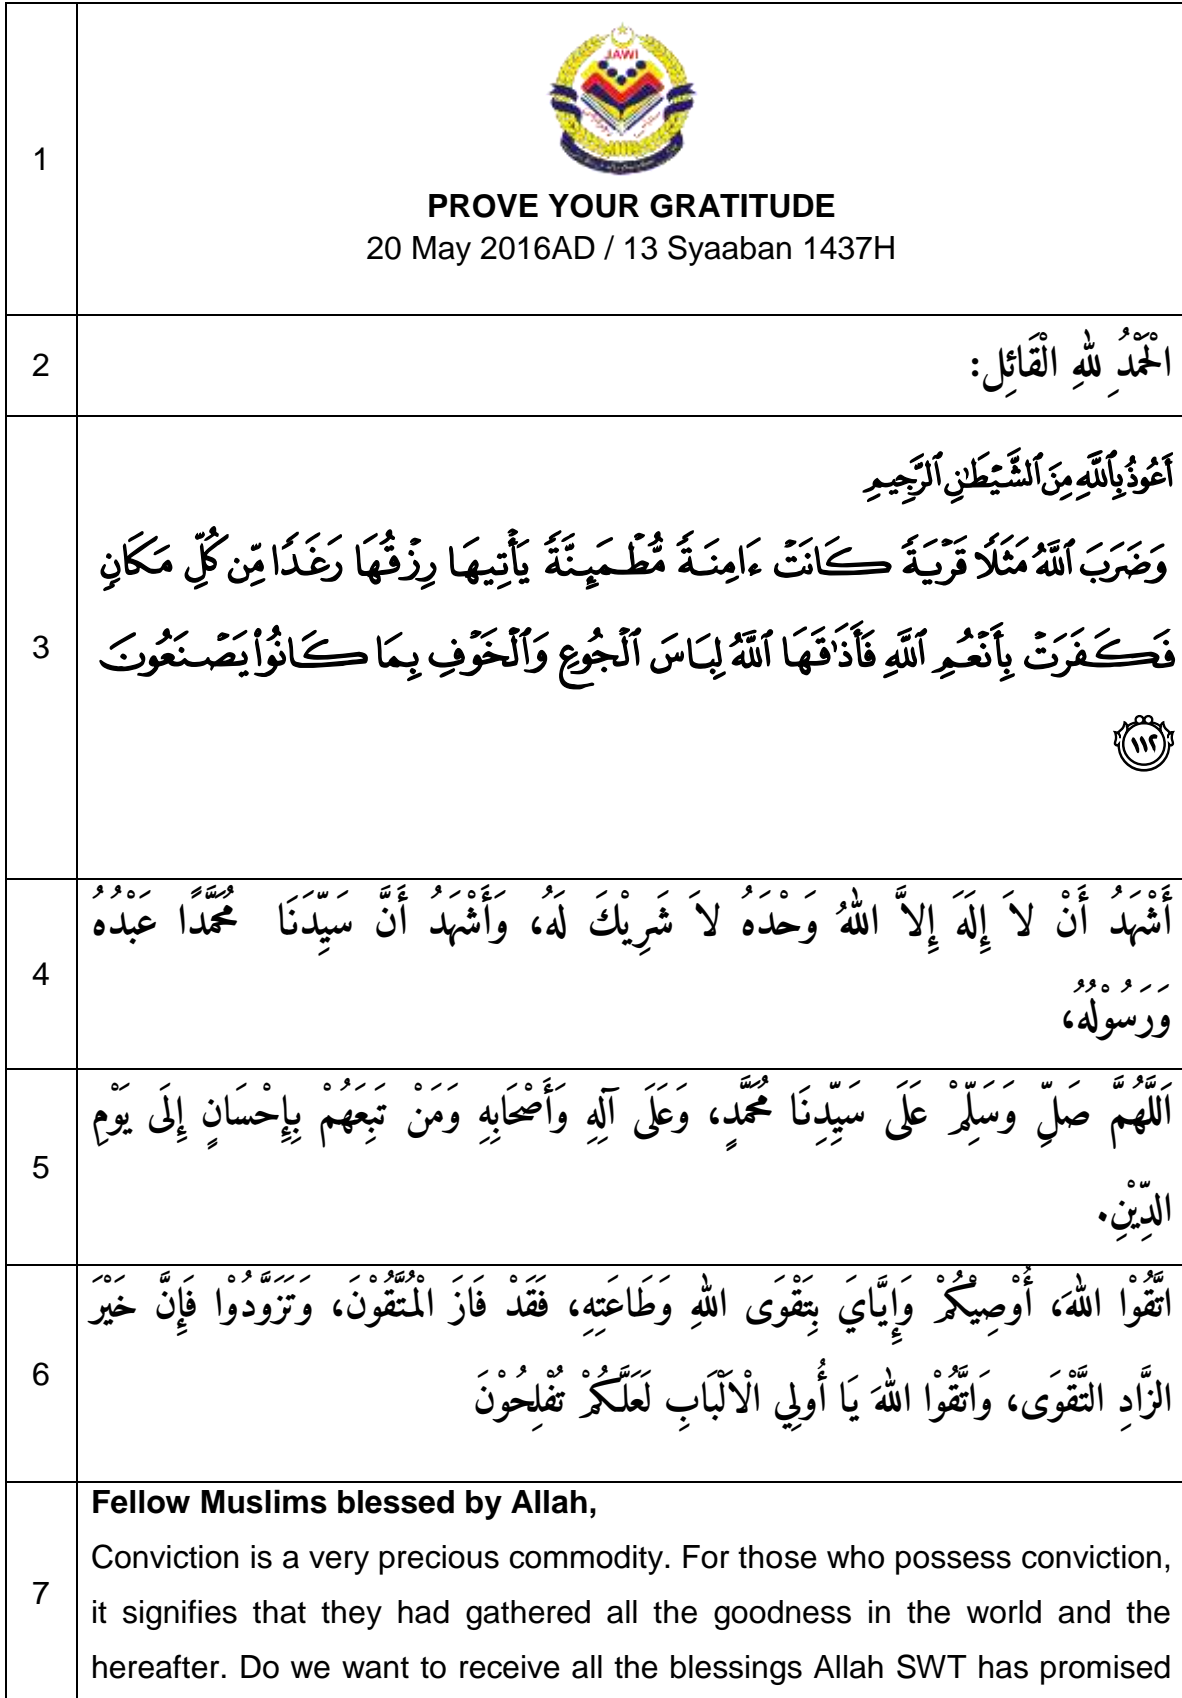 1
JAWI
PROVE YOUR GRATITUDE
20 May 2016AD / 13 Syaaban 1437H
2
الْحَمْدُ لِلَّهِ الْقَائِلِ:
3
أَعُوذُ بِٱللَّهِ مِنَ ٱلشَّيْطَٰنِ ٱلرَّجِيمِ
وَضَرَبَ ٱللَّهُ مَثَلًا قَرْيَةً كَانَتْ ءَامِنَةً مُّطْمَئِنَّةً يَأْتِيهَا رِزْقُهَا رَغَدًا مِّن كُلِّ مَكَانٍ
فَكَفَرَتْ بِأَنْعُمِ ٱللَّهِ فَأَذَٰقَهَا ٱللَّهُ لِبَاسَ ٱلْجُوعِ وَٱلْخَوْفِ بِمَا كَانُوا۟ يَصْنَعُونَ
١١٢
4
أَشْهَدُ أَنْ لاَ إِلَهَ إِلاَّ اللهُ وَحْدَهُ لاَ شَرِيْكَ لَهُ، وَأَشْهَدُ أَنَّ سَيِّدَنَا مُحَمَّدًا عَبْدُهُ
وَرَسُوْلُهُ،
5
اَللَّهُمَّ صَلِّ وَسَلِّمْ عَلَى سَيِّدِنَا مُحَمَّدٍ، وَعَلَى آلِهِ وَأَصْحَابِهِ وَمَنْ تَبِعَهُمْ بِإِحْسَانٍ إِلَى يَوْمِ
الدِّيْنِ.
6
اتَّقُوْا اللهَ، أُوْصِيْكُمْ وَإِيَّايَ بِتَقْوَى اللهِ وَطَاعَتِهِ، فَقَدْ فَازَ الْمُتَّقُوْنَ، وَتَزَوَّدُوْا فَإِنَّ خَيْرَ
الزَّادِ التَّقْوَى، وَاتَّقُوْا اللهَ يَا أُولِي الْاَلْبَابِ لَعَلَّكُمْ تُفْلِحُوْنَ
7
Fellow Muslims blessed by Allah,
Conviction is a very precious commodity. For those who possess conviction,
it signifies that they had gathered all the goodness in the world and the
hereafter. Do we want to receive all the blessings Allah SWT has promised